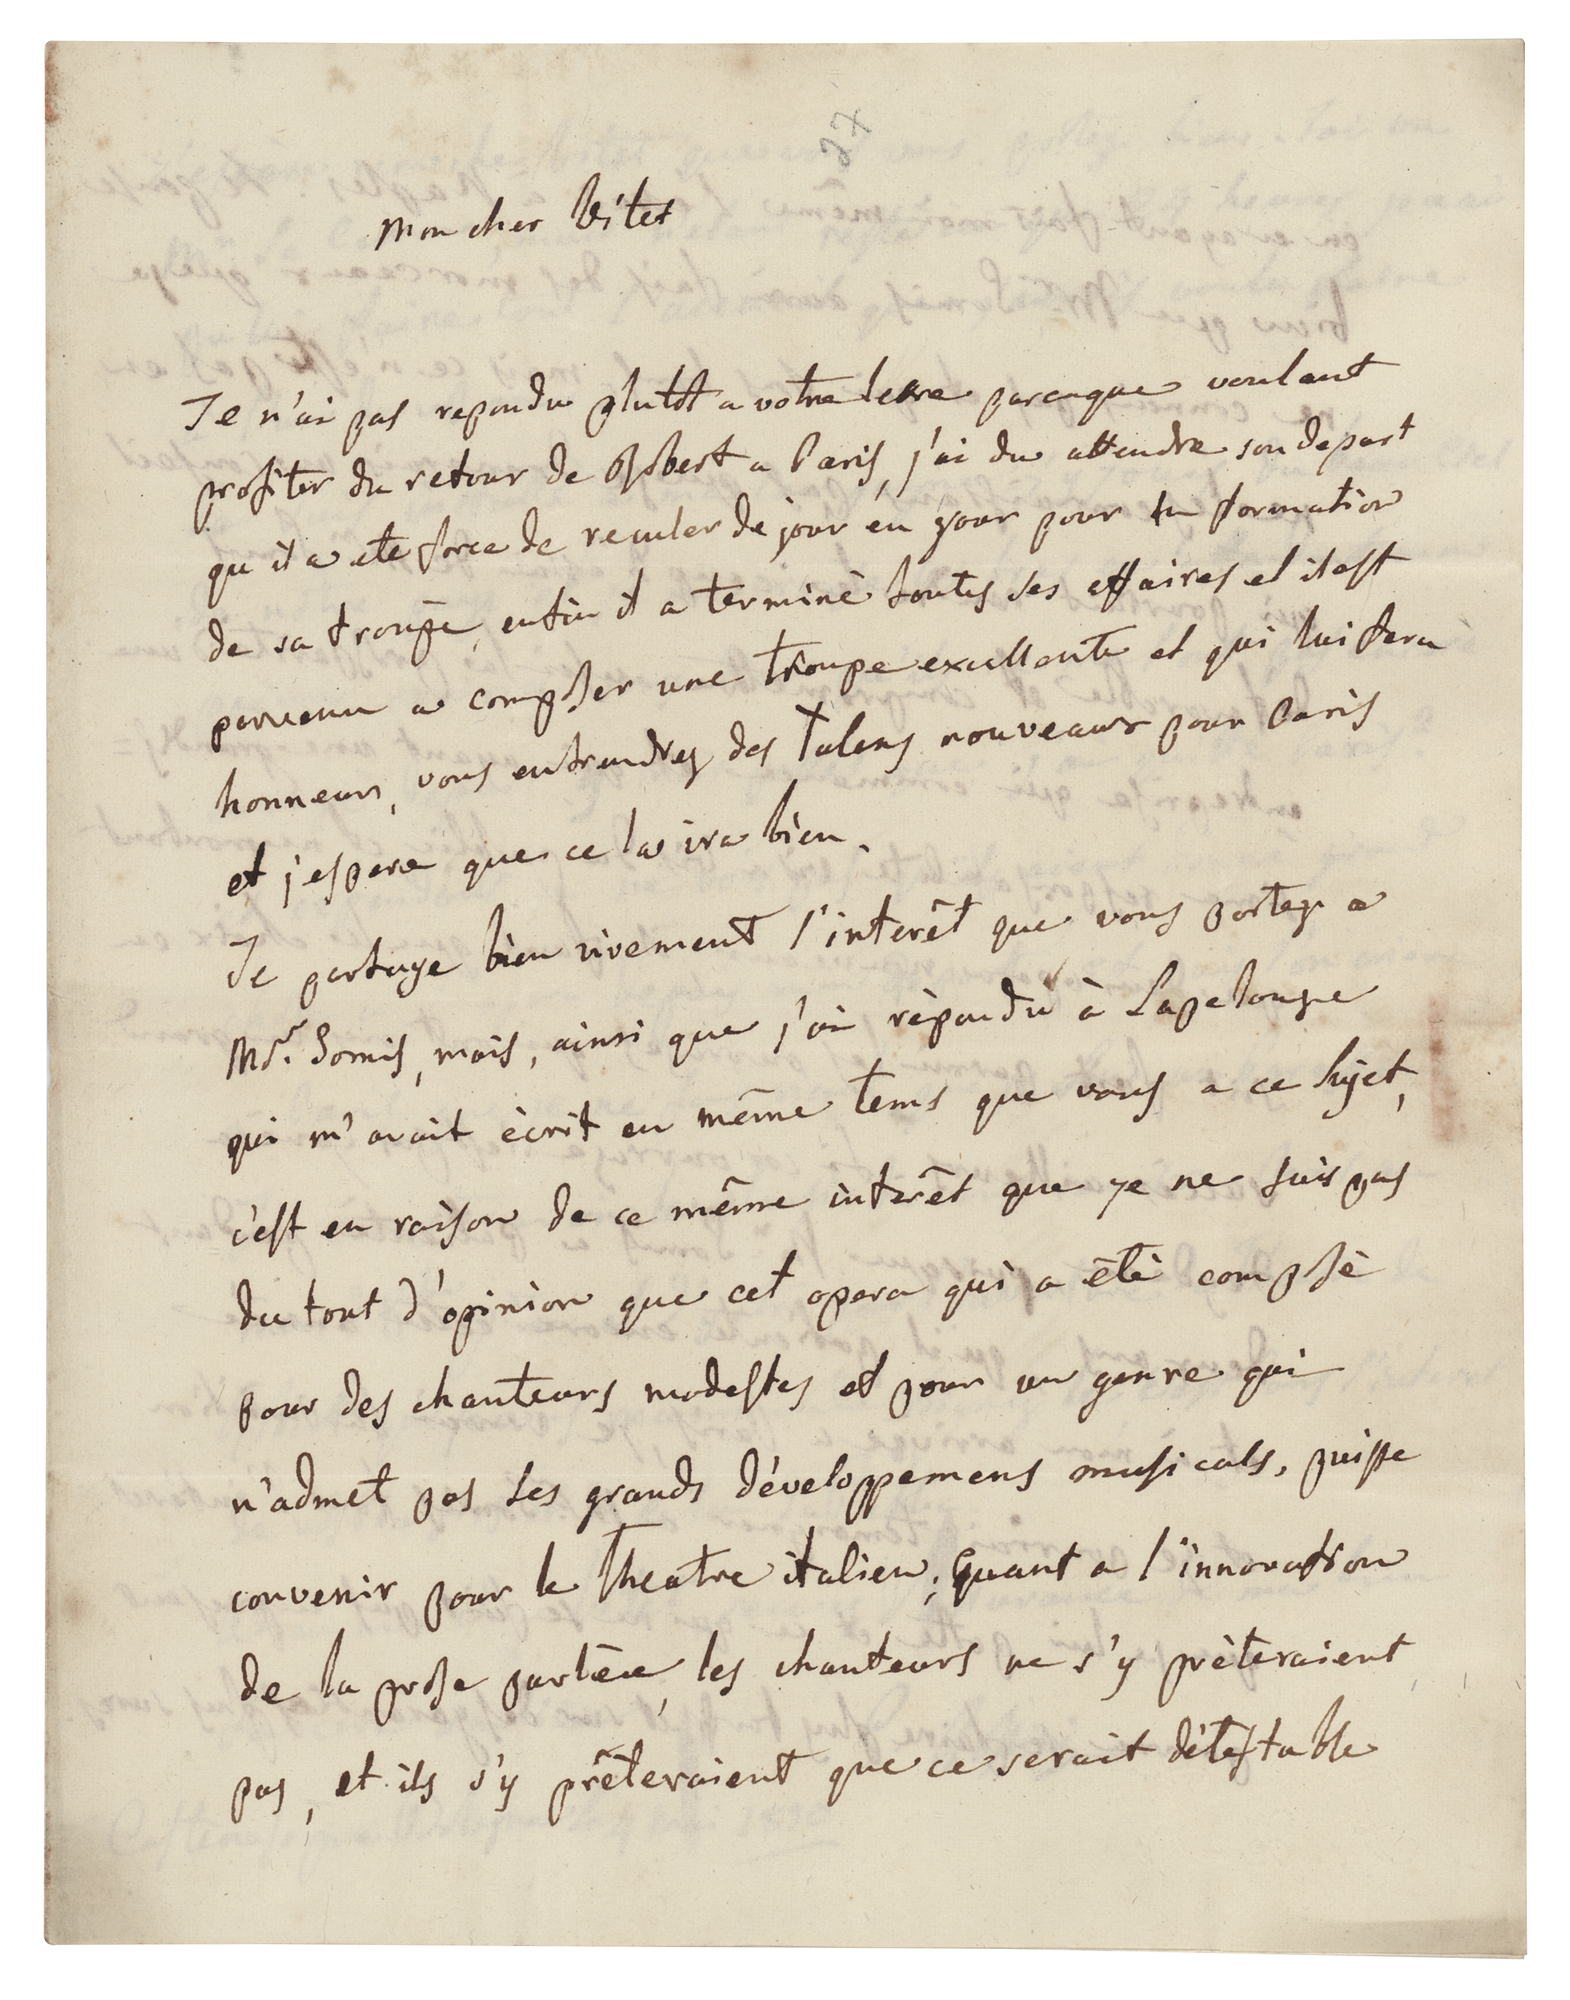 Mon cher Vitet
Je n'ai pas repondu plutôt a votre lettre parceque voulant
profiter du retour de Robert a Paris, j'ai du attendre son depart
qu'il a ete force de reculer de jour en jour pour la formation
de sa troupe, enfin il a terminé toutes ses affaires et il est
parvenu a composer une troupe excellente et qui lui fera
honneur, vous entendrez des talens nouveaux pour Paris
et j'espere que cela ira bien.
Je partage bien vivement l'interêt que vous portez a
Mr. Somis, mais, ainsi que j'ai répondu à Lapelouze
qui m'avait écrit en même tems que vous a ce sujet,
c'est en raison de ce même intérêt que je ne suis pas
du tout d'opinion que cet opera qui a été composé
pour des chanteurs modestes et pour un genre qui
n'admet pas les grands développemens musicals, puisse
convenir pour le Theatre italien; Quant a l'innovation
de la prose parlèe, les chanteurs ne s'y prèteraient
pas, et ils s'y prêteraient que ce serait détestable